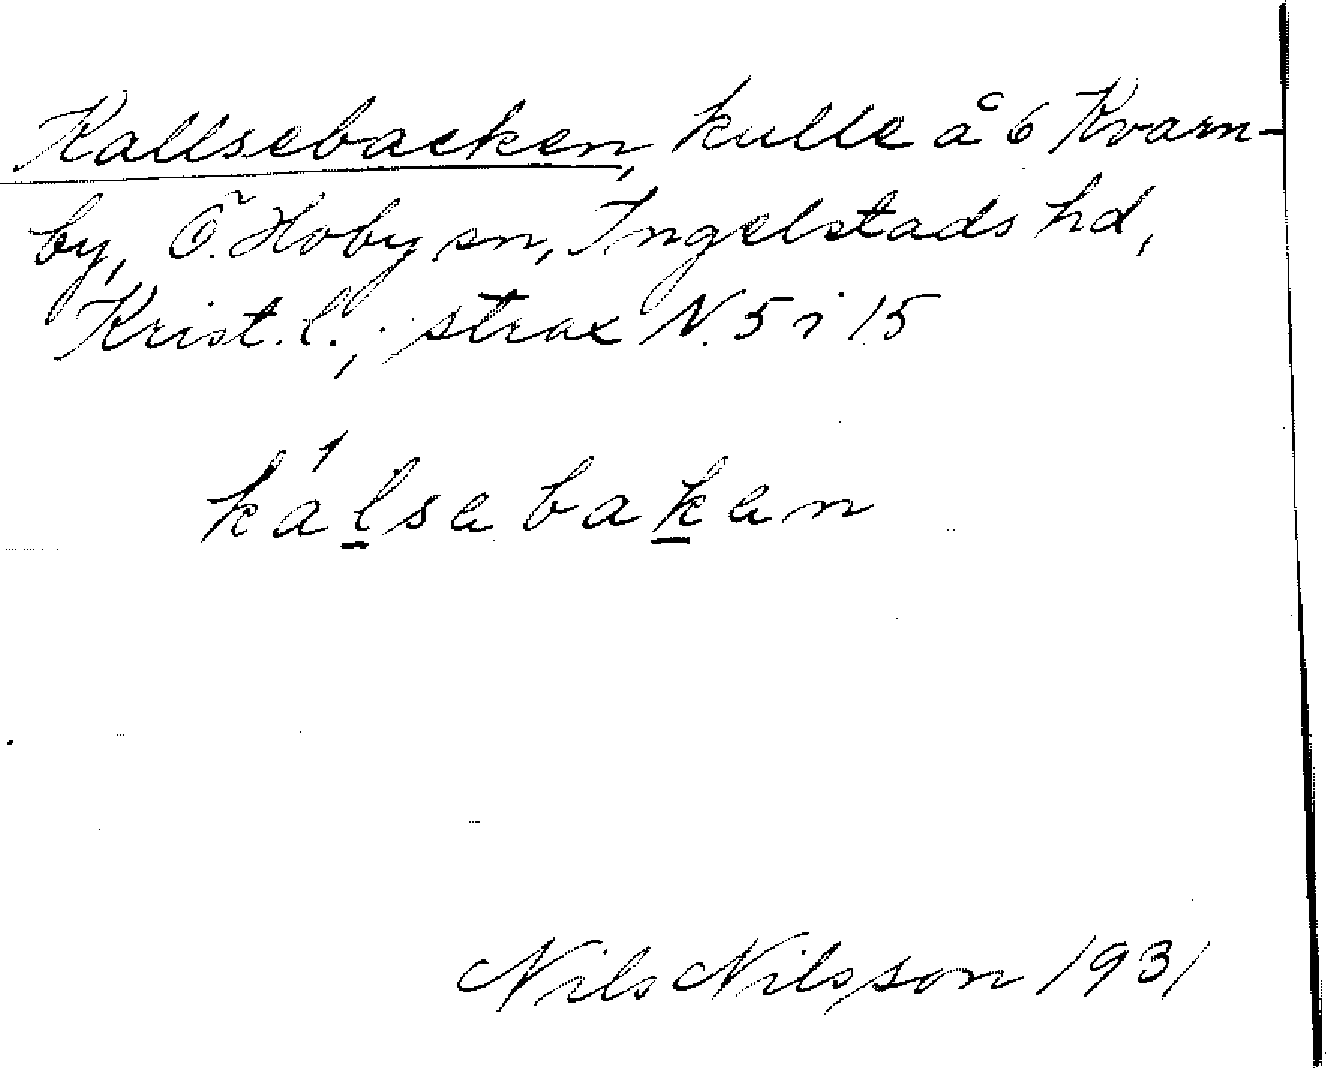 Kallsebacken, kulle å 6 Kvarn-
by, Ö. Hoby sn, Ingelstads hd,
Krist. l.; strax N. 5 i 15
kálsebaken
Nils Nilsson 1931